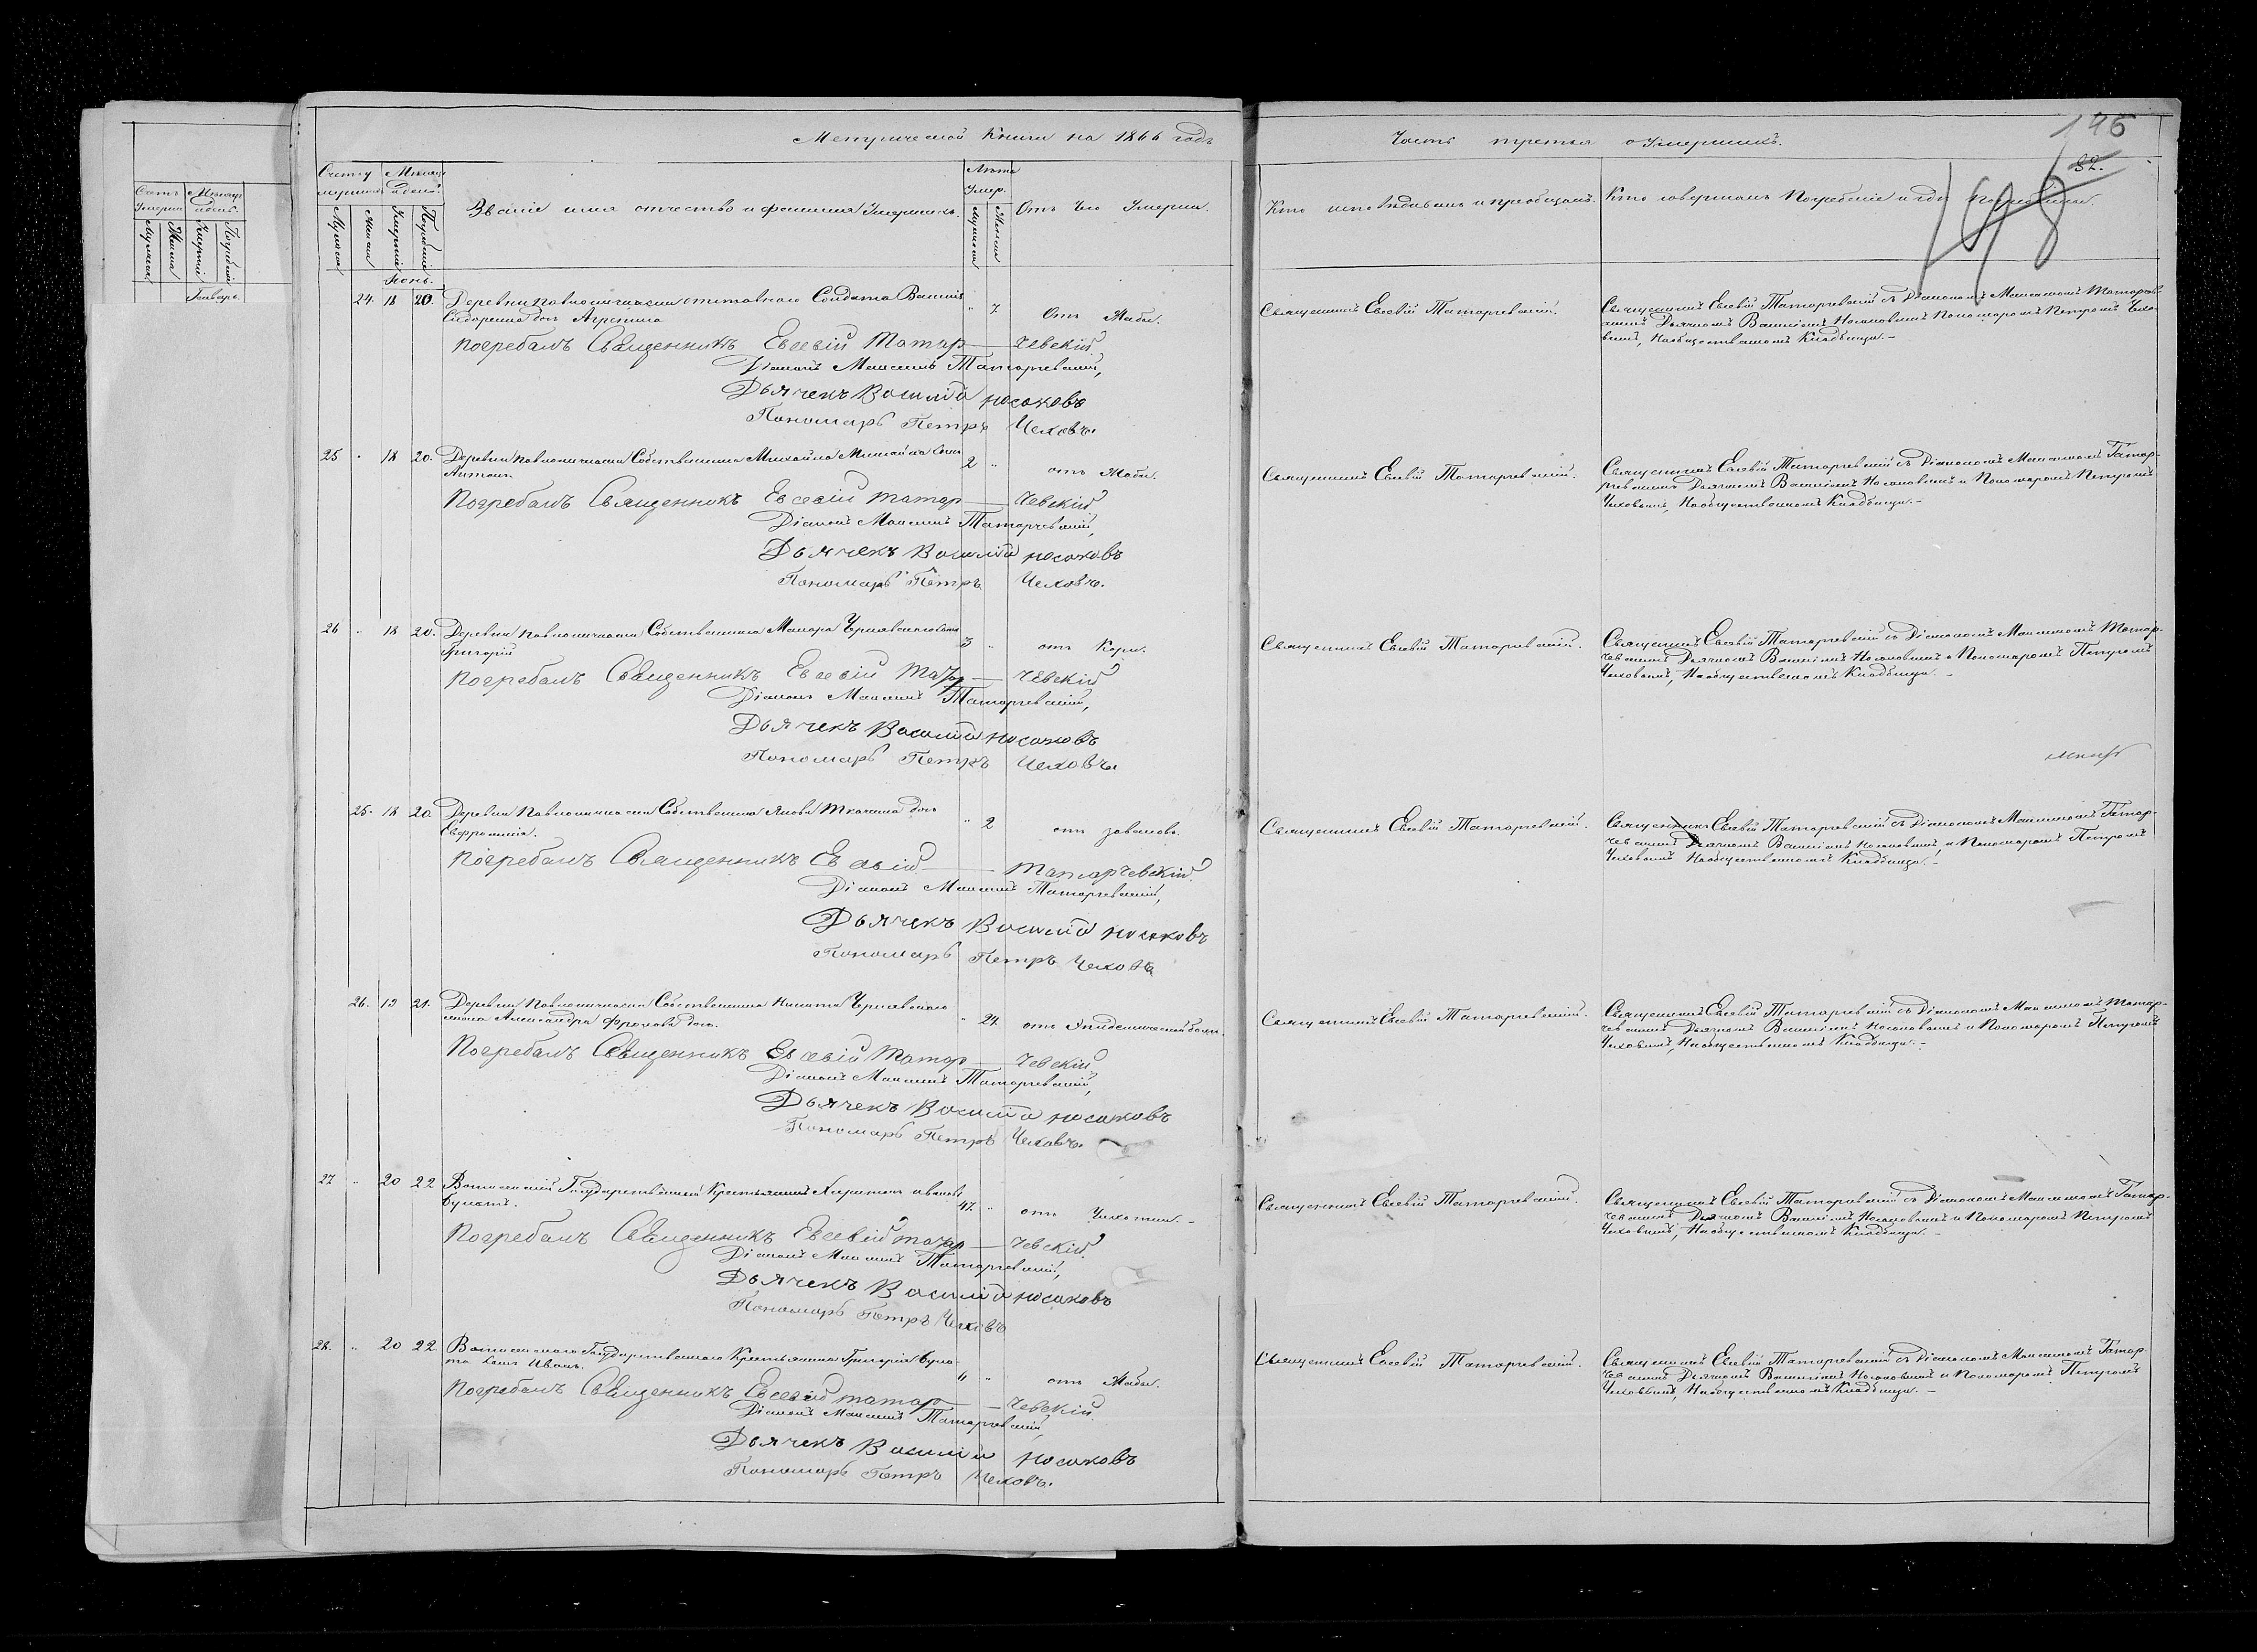 Метрической Книги на 1866 годъ
Часть третья о Умершихъ.
146
82.
198
Счетъ умершихъ
Мѣсяцъ и день.
Мужеска
Женска
Умертвія
Погребенія
Званіе имя отчество и фамилія Умершихъ.
Лѣта Умер.
Мужеска
Женска
Отъ чего Умерли.
Кто исповѣдывалъ и пріобщалъ.
Кто совершалъ Погребеніе и гдѣ Погребены.
Іюнь.
24. 18 20. Деревни отставнаго Солдата Василія
Сидоренка дочь Агрипина " 7 Отъ Жабы.
Погребалъ Священникъ Евсевій Татарчевскій
Діаконъ Максимъ Татарчевскій,
Дьячекъ Василій Носаковъ
Пономарь Петръ Чеховъ.
Священникъ Евсевій Татарчевскій.
Священникъ Евсевій Татарчевскій съ Діакономъ Максимомъ Татарчев-
скимъ Дьячкомъ Василіемъ Носаковымъ Пономаремъ Петромъ Чехо-
вымъ, На общественномъ Кладбищѣ. -
25 " 18 20. Деревни Собственника Михаила сынъ
Антонъ. 2 " отъ Жабы.
Погребалъ Священникъ Евсевій Татарчевскій
Діаконъ Максимъ Татарчевскій,
Дьячекъ Василій Носаковъ
Пономарь Петръ Чеховъ.
Священникъ Евсевій Татарчевскій.
Священникъ Евсевій Татарчевскій съ Діакономъ Максимомъ Татар-
чевскимъ Дьячкомъ Василіемъ Носаковымъ и Пономаремъ Петромъ
Чеховымъ, На общественномъ Кладбищѣ. -
26 " 18 20. Деревни Собственника Макара Чернявскаго сынъ
Григорій 3 " отъ Кори.
Погребалъ Священникъ Евсевій Татарчевскій
Діаконъ Максимъ Татарчевскій,
Дьячекъ Василій Носаковъ
Пономарь Петръ Чеховъ.
Священникъ Евсевій Татарчевскій.
Священникъ Евсевій Татарчевскій съ Діакономъ Максимомъ Татар-
чевскимъ Дьячкомъ Василіемъ Носаковымъ и Пономаремъ Петромъ
Чеховымъ, На общественномъ Кладбищѣ. -
25. 18 20. Деревни Собственника Якова Ткаченка дочь
Евфросинія. " 2 отъ
Погребалъ Священникъ Евсевій Татарчевскій
Діаконъ Максимъ Татарчевскій,
Дьячекъ Василій Носаковъ
Пономарь Петръ Чеховъ
Священникъ Евсевій Татарчевскій.
Священникъ Евсевій Татарчевскій съ Діакономъ Максимомъ Татар-
чевскимъ Дьячкомъ Василіемъ Носаковымъ и Пономаремъ Петромъ
Чеховымъ На общественномъ Кладбищѣ. -
26. 19 21. Деревни Собственника Никиты Чернявскаго
жена Александра дочь. " 24 отъ Эпидемической болѣз.
Погребалъ Священникъ Евсевій Татарчевскій
Діаконъ Максимъ Татарчевскій,
Дьячекъ Василій Носаковъ
Пономарь Петръ Чеховъ.
Священникъ Евсевій Татарчевскій.
Священникъ Евсевій Татарчевскій съ Діакономъ Максимомъ Татар-
чевскимъ Дьячкомъ Василіемъ Носаковымъ и Пономаремъ Петромъ
Чеховымъ, На общественномъ Кладбищѣ. -
27 " 20 22 Государственный Крестьянинъ Харитонъ Ивановъ
47 " отъ Чахотки. -
Погребалъ Священникъ Евсевій Татарчевскій
Діаконъ Максимъ Татарчевскій,
Дьячекъ Василій Носаковъ
Пономарь Петръ Чеховъ
Священникъ Евсевій Татарчевскій.
Священникъ Евсевій Татарчевскій съ Діакономъ Максимомъ Татар-
чевскимъ Дьячкомъ Василіемъ Носаковымъ и Пономаремъ Петромъ
Чеховымъ, На общественномъ Кладбищѣ. -
28. " 20 22 Государственнаго Крестьянина Григорія
сынъ Иванъ. 4 " отъ Жабы.
Погребалъ Священникъ Евсевій Татарчевскій
Діаконъ Максимъ Татарчевскій
Дьячекъ Василій Носаковъ
Пономарь Петръ Чеховъ.
Священникъ Евсевій Татарчевскій.
Священникъ Евсевій Татарчевскій съ Діакономъ Максимомъ Татар-
чевскимъ Дьячкомъ Василіемъ Носаковымъ и Пономаремъ Петромъ
Чеховымъ, На общественномъ Кладбищѣ. -